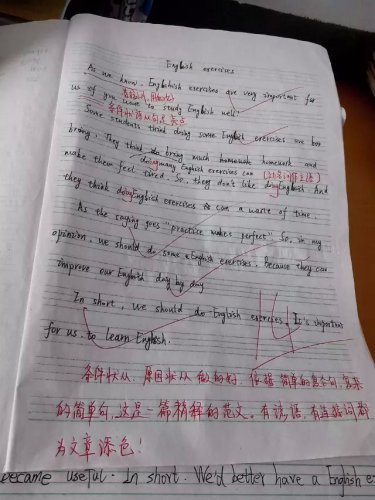 English exercises
As we know, English exercises are very important for
us if you want to study English well.
条件状语从句是亮点
Some students think doing some English exercises are bor
bring. They think bring much homework homework and
doing many English exercises can (动名词作主语)
make them feel tired. So, they don't like doing English. And
they think doing English exercises is can a waste of time.
As the saying goes "practice makes perfect". So, in my
opinion, we should do some English exercises. Because they can
improve our English day by day.
In short, we should do English exercises. It's important
for us to learn English.
14
条件状从、原因状从做的好，依据简单的复合句，复杂
的简单句，这是一篇精裤的范文。有谚语，有连接词都
为文章添色！
became useful. In short. We'd better have a English ex